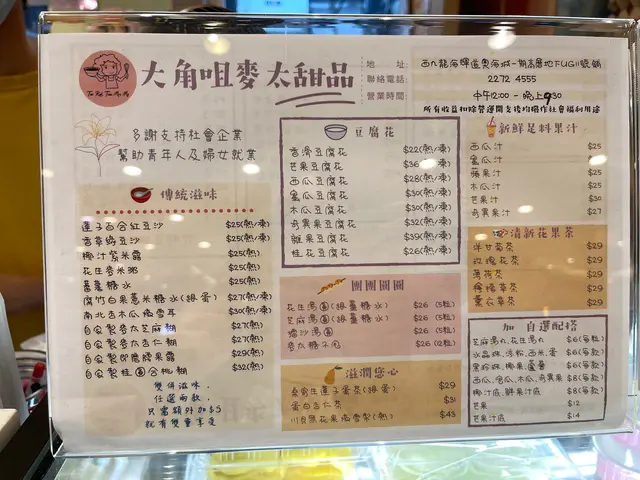 大角咀麥太甜品
地 址:
西九龍海輝道奧海城一期高層地FUG11號舖
聯絡電話:
2272 4555
營業時間:
中午12:00 - 晚上9:30
所有收益扣除營運開支後均撥作社會福利用途
多謝支持社會企業
幫助青年人及婦女就業
傳統滋味
蓮子百合紅豆沙 $25(熱/凍)
香草綠豆沙 $25(熱/凍)
椰汁紫米露 $25(熱)
花生香米粥 $25(熱)
蕃薯糖水 $25(熱)
腐竹白果薏米糖水(役蛋) $27(熱/凍)
南北杏木瓜燉雪耳 $30(熱/凍)
自家製麥太芝麻糊 $27(熱)
自家製麥太杏仁糊 $27(熱)
自家製即磨腰果露 $29(熱)
自家製桂圓合桃糊 $32(熱)
雙併滋味,
任選兩款,
只需額外加$5
就有雙重享受
豆腐花
香滑豆腐花 $22(熱/凍)
芒果豆腐花 $36(熱/凍)
西瓜豆腐花 $28(熱/凍)
蜜瓜豆腐花 $30(熱/凍)
木瓜豆腐花 $30(熱/凍)
奇異果豆腐花 $32(熱/凍)
雜果豆腐花 $39(熱/凍)
桂花豆腐花 $26(熱/凍)
團團圓圓
花生湯圓(跟薑糖水) $26 (5粒)
芝麻湯圓(跟薑糖水) $26 (5粒)
擂沙湯圓 $26 (5粒)
麥太糖不甩 $26 (2粒)
滋潤您心
桑寄生蓮子蛋茶(役蛋) $29
蛋白杏仁茶 $31
川貝無花果燉雪梨(熱) $43
新鮮足料果汁
西瓜汁 $25
蜜瓜汁 $25
蘋果汁 $25
木瓜汁 $25
芒果汁 $30
奇異果汁 $27
清新花果茶
洋甘菊茶 $29
玫瑰花茶 $29
薄荷茶 $29
檸檬草茶 $29
薰衣草茶 $29
加 自選配搭
芝麻湯丸,花生湯丸 $6(每款)
水晶冰,涼粉,西米,蛋 $6(每款)
黑珍珠,椰果,蘆薈 $6(每款)
西瓜,蜜瓜,木瓜,奇異果 $8(每款)
椰汁底,鮮果汁底 $8(每款)
芒果 $12
芒果汁底 $14